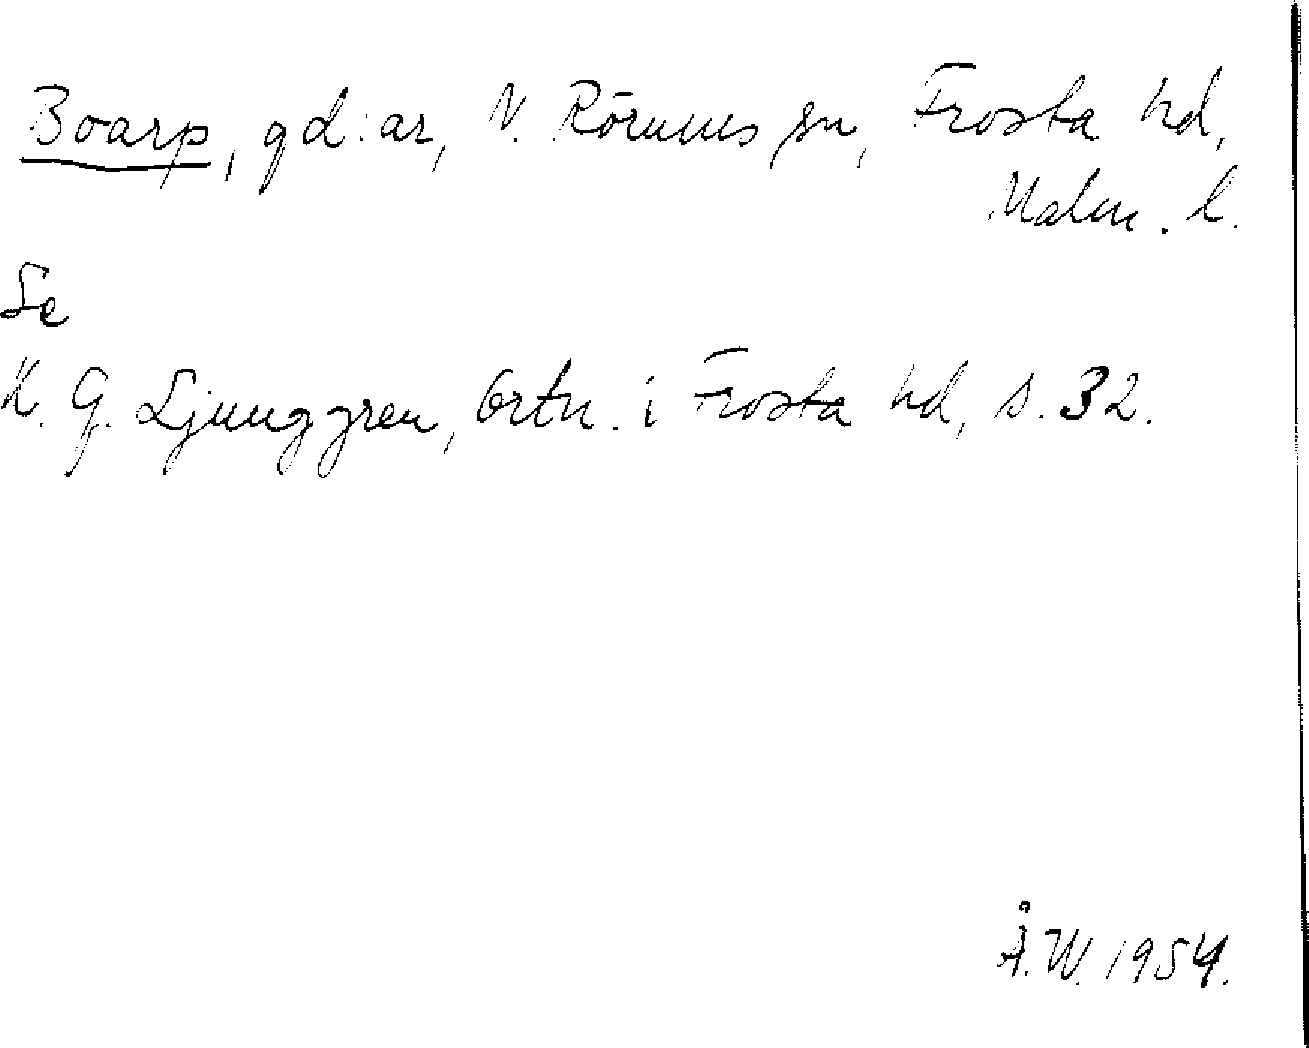 Boarp, gd:ar, N. Rörums sn, Frosta hd,
Malm. l.
Se
K. G. Ljunggren, Ortn. i Frosta hd, s. 32.
Å.W. 1954.